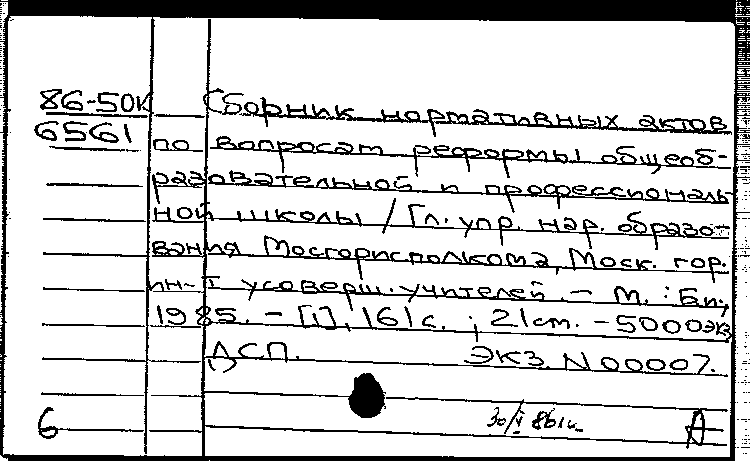 86-50К Сборник нормативных актов
6561 по вопросам реформы общеоб-
разовательной и профессиональ-
ной школы / Гл. упр. нар. образо-
вания Мосгорисполкома, Моск. гор.
ин-т усоверш. учителей. – М. : Б.и.,
1985. – [1], 161 с. ; 21 см. – 5000 экз.
ДСП. Экз. N 00007.
6 30/V 86 А